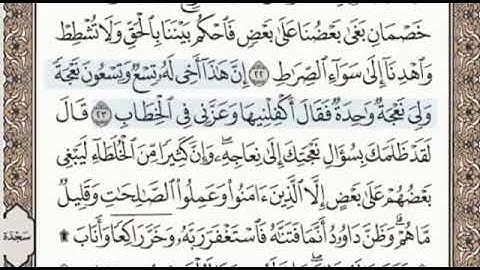 خَصْمَانِ بَغَىٰ بَعْضُنَا عَلَىٰ بَعْضٍ فَٱحْكُم بَيْنَنَا بِٱلْحَقِّ وَلَا تُشْطِطْ
وَٱهْدِنَآ إِلَىٰ سَوَآءِ ٱلصِّرَٰطِ ٢٢ إِنَّ هَٰذَآ أَخِى لَهُۥ تِسْعٌ وَتِسْعُونَ نَعْجَةً
وَلِىَ نَعْجَةٌ وَٰحِدَةٌ فَقَالَ أَكْفِلْنِيهَا وَعَزَّنِى فِى ٱلْخِطَابِ ٢٣ قَالَ
لَقَدْ ظَلَمَكَ بِسُؤَالِ نَعْجَتِكَ إِلَىٰ نِعَاجِهِۦ ۖ وَإِنَّ كَثِيرًا مِّنَ ٱلْخُلَطَآءِ لَيَبْغِى
بَعْضُهُمْ عَلَىٰ بَعْضٍ إِلَّا ٱلَّذِينَ ءَامَنُوا۟ وَعَمِلُوا۟ ٱلصَّٰلِحَٰتِ وَقَلِيلٌ
مَّا هُمْ ۗ وَظَنَّ دَاوُۥدُ أَنَّمَا فَتَنَّٰهُ فَٱسْتَغْفَرَ رَبَّهُۥ وَخَرَّ رَاكِعًا وَأَنَابَ ۩
سَجْدَة